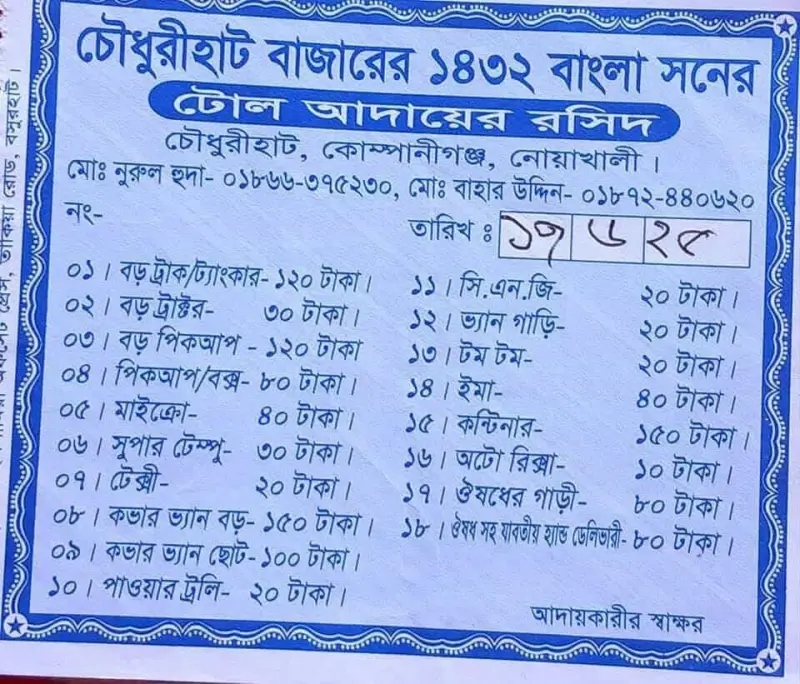 চৌধুরীহাট বাজারের ১৪৩২ বাংলা সনের
টোল আদায়ের রসিদ
চৌধুরীহাট, কোম্পানীগঞ্জ, নোয়াখালী।
মোঃ নুরুল হুদা- ০১৮৬৬-৩৭৫২৩০, মোঃ বাহার উদ্দিন- ০১৮৭২-৪৪০৬২০
নং-
তারিখ ঃ ১৭ ৬ ২৫
০১। বড় ট্রাক/ট্যাংকার- ১২০ টাকা।
০২। বড় ট্রাক্টর- ৩০ টাকা।
০৩। বড় পিকআপ - ১২০ টাকা
০৪। পিকআপ/বক্স- ৮০ টাকা।
০৫। মাইক্রো- ৪০ টাকা।
০৬। সুপার টেম্পু- ৩০ টাকা।
০৭। টেক্সী- ২০ টাকা।
০৮। কভার ভ্যান বড়- ১৫০ টাকা।
০৯। কভার ভ্যান ছোট- ১০০ টাকা।
১০। পাওয়ার ট্রলি- ২০ টাকা।
১১। সি.এন.জি- ২০ টাকা।
১২। ভ্যান গাড়ি- ২০ টাকা।
১৩। টম টম- ২০ টাকা।
১৪। ইমা- ৪০ টাকা।
১৫। কন্টিনার- ১৫০ টাকা।
১৬। অটো রিক্সা- ১০ টাকা।
১৭। ঔষধের গাড়ী- ৮০ টাকা।
১৮। ঔষধ সহ যাবতীয় হ্যান্ড ডেলিভারী- ৮০ টাকা।
আদায়কারীর স্বাক্ষর
রোড, বসুরহাট।